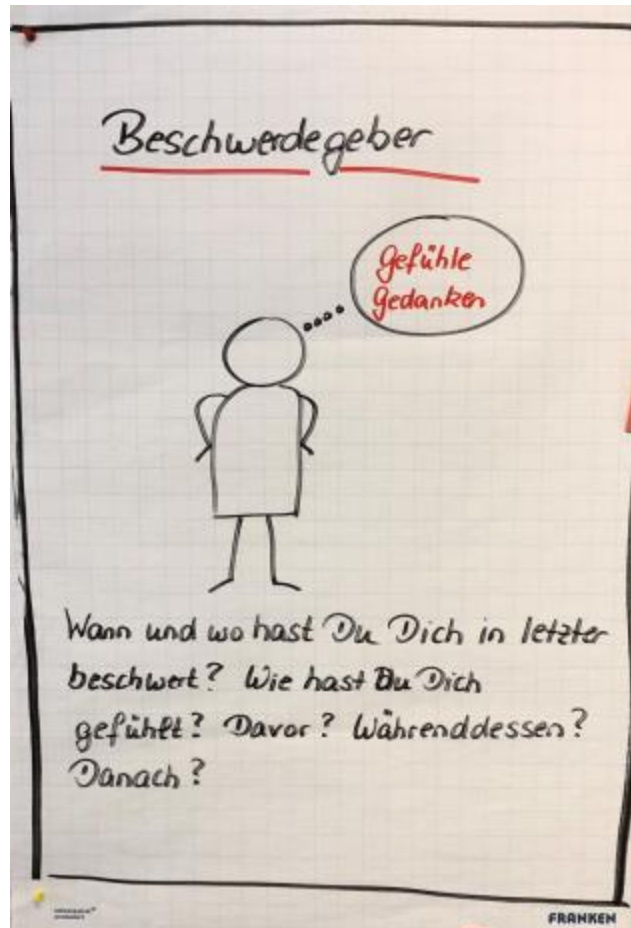 Beschwerdegeber
gefühle
gedanken
Wann und wo hast Du Dich in letzter
beschwert? Wie hast Du Dich
gefühlt? Davor? Währenddessen?
Danach?
FRANKEN